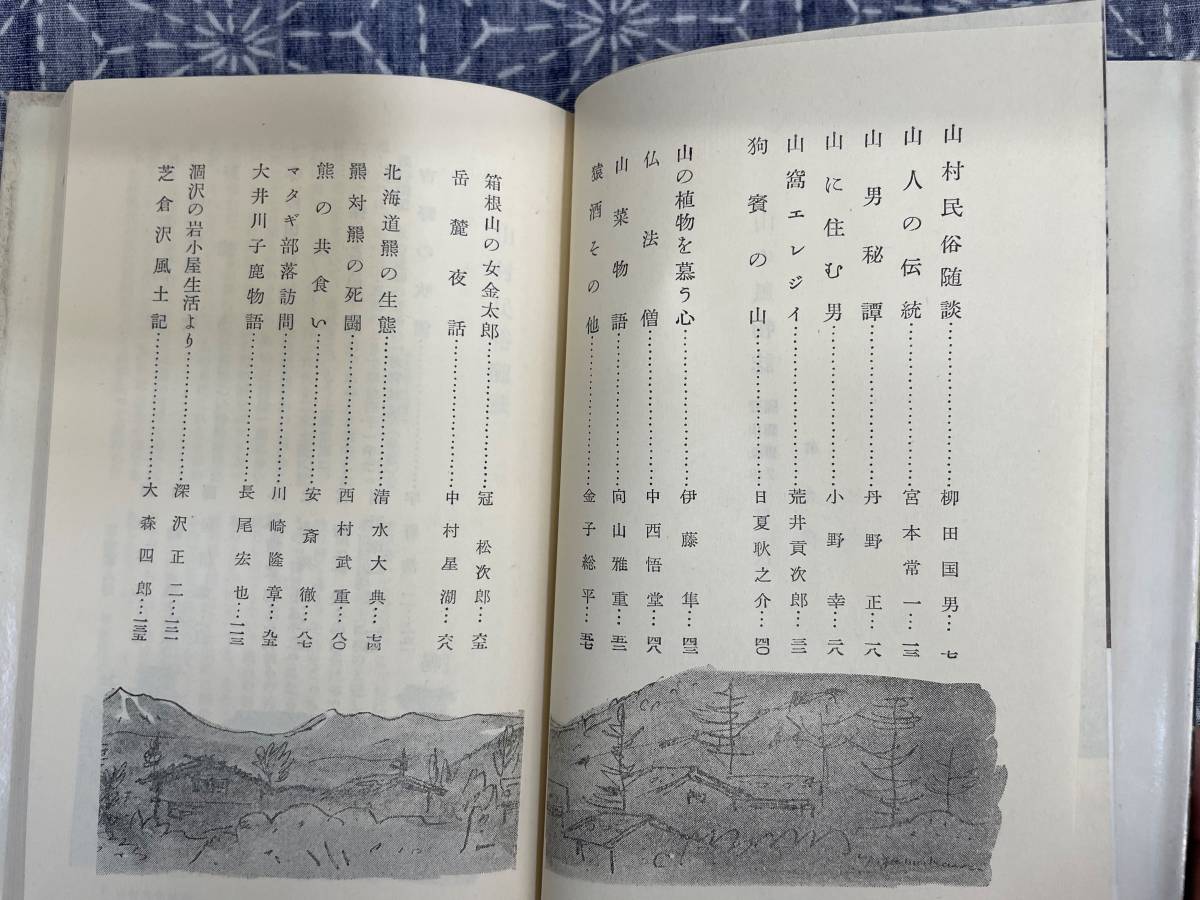 山村民俗随談…柳田国男…七
山人の伝統…宮本常一…一三
山男秘譚…丹野正…一八
山に住む男…小野幸…二八
山窩エレジイ…荒井貢次郎…三三
狗賓の山…日夏耿之介…四〇
山の植物を慕う心…伊藤隼…四三
仏法僧…中西悟堂…四八
山菜物語…向山雅重…五三
猿酒その他…金子総平…五七
箱根山の女金太郎…冠松次郎…六五
岳麓夜話…中村星湖…六八
北海道熊の生態…清水大典…七四
羆対羆の死闘…西村武重…八〇
熊の共食い…安斎徹…八七
マタギ部落訪問…川崎隆章…九五
大井川子鹿物語…長尾宏也…一一三
涸沢の岩小屋生活より…深沢正二…一二一
芝倉沢風土記…大森四郎…一三五